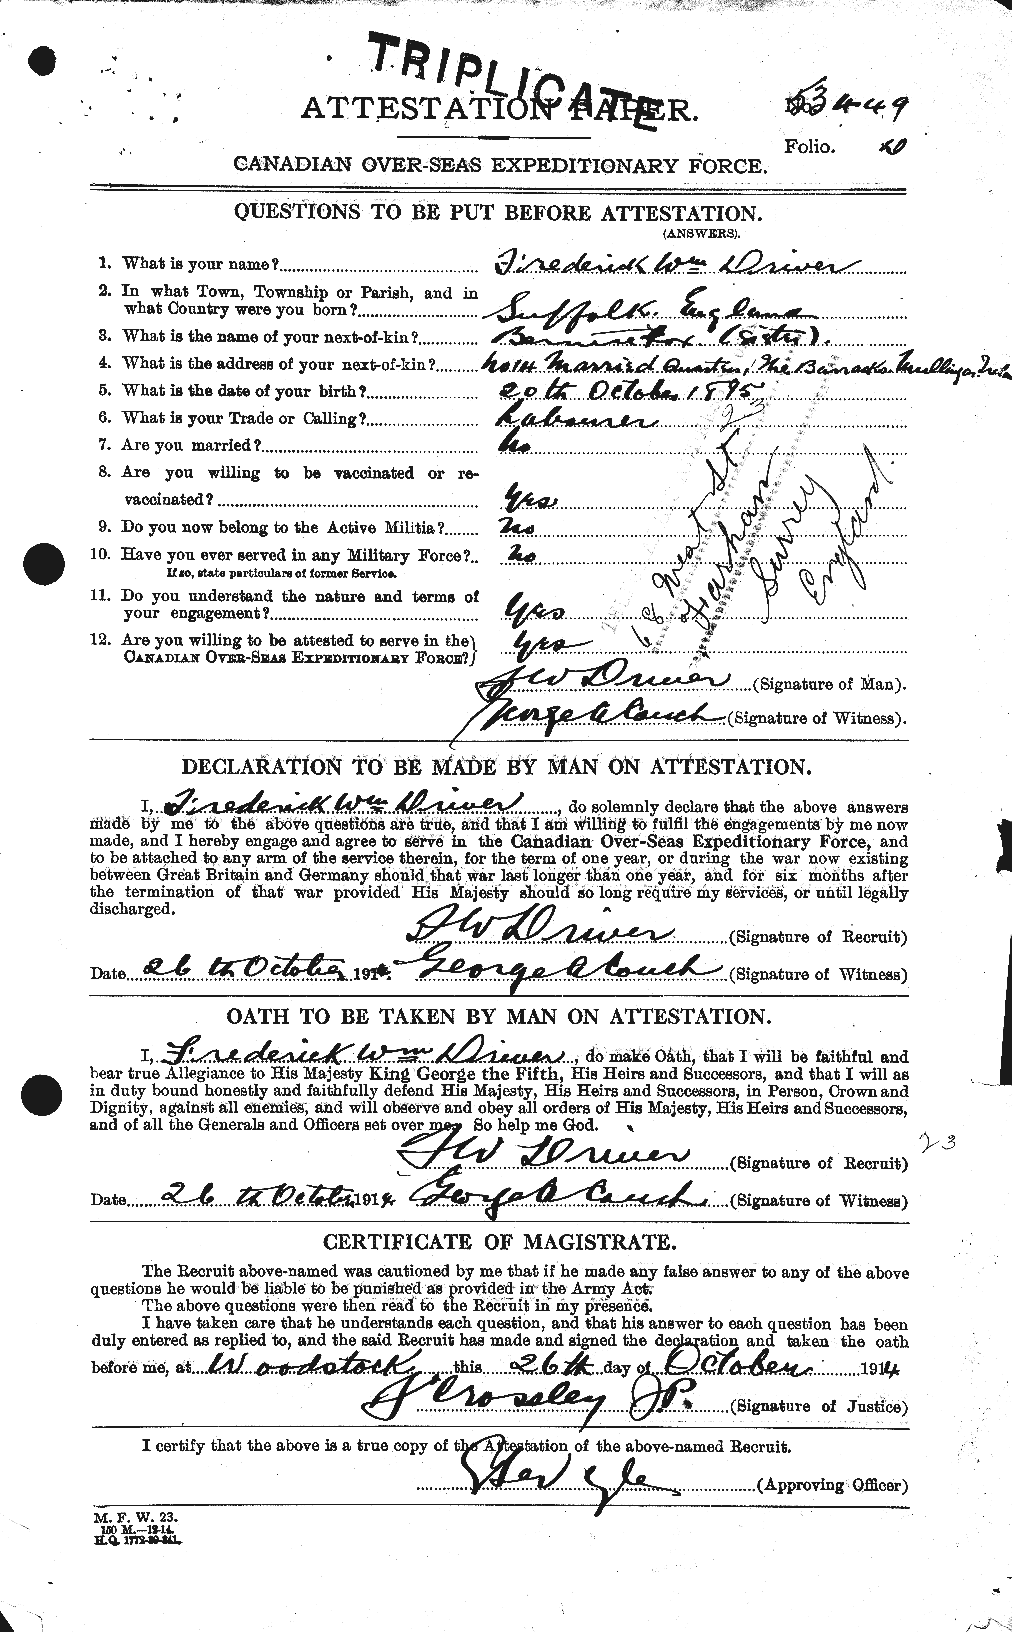 TRIPLICATE
ATTESTATION PAPER.
No. 53449
Folio.
CANADIAN OVER-SEAS EXPEDITIONARY FORCE.
QUESTIONS TO BE PUT BEFORE ATTESTATION.
(ANSWERS).
1. What is your name? Frederick Wm Driver
2. In what Town, Township or Parish, and in
what Country were you born? Suffolk. England
3. What is the name of your next-of-kin? (Sister).
4. What is the address of your next-of-kin? Married Quarters, The Barracks, Mullingar,
5. What is the date of your birth? 20th October 1895
6. What is your Trade or Calling? Labourer
7. Are you married? No
8. Are you willing to be vaccinated or re-
vaccinated? Yes
9. Do you now belong to the Active Militia? No
10. Have you ever served in any Military Force? No
If so, state particulars of former Service.
11. Do you understand the nature and terms of
your engagement? Yes
12. Are you willing to be attested to serve in the
CANADIAN OVER-SEAS EXPEDITIONARY FORCE? Yes
23
68 West St
Farnham
Surrey
England
F W Driver (Signature of Man).
George A Couch (Signature of Witness).
DECLARATION TO BE MADE BY MAN ON ATTESTATION.
I, Frederick Wm Driver, do solemnly declare that the above answers
made by me to the above questions are true, and that I am willing to fulfil the engagements by me now
made, and I hereby engage and agree to serve in the Canadian Over-Seas Expeditionary Force, and
to be attached to any arm of the service therein, for the term of one year, or during the war now existing
between Great Britain and Germany should that war last longer than one year, and for six months after
the termination of that war provided His Majesty should so long require my services, or until legally
discharged.
F W Driver (Signature of Recruit)
Date 26th October 1914. George A Couch (Signature of Witness)
OATH TO BE TAKEN BY MAN ON ATTESTATION.
I, Frederick Wm Driver, do make Oath, that I will be faithful and
bear true Allegiance to His Majesty King George the Fifth, His Heirs and Successors, and that I will as
in duty bound honestly and faithfully defend His Majesty, His Heirs and Successors, in Person, Crown and
Dignity, against all enemies, and will observe and obey all orders of His Majesty, His Heirs and Successors,
and of all the Generals and Officers set over me. So help me God.
23
F W Driver (Signature of Recruit)
Date 26th October 1914 George A Couch (Signature of Witness)
CERTIFICATE OF MAGISTRATE.
The Recruit above-named was cautioned by me that if he made any false answer to any of the above
questions he would be liable to be punished as provided in the Army Act.
The above questions were then read to the Recruit in my presence.
I have taken care that he understands each question, and that his answer to each question has been
duly entered as replied to, and the said Recruit has made and signed the declaration and taken the oath
before me, at Woodstock, this 26th day of October 1914
Crossley JP. (Signature of Justice)
I certify that the above is a true copy of the Attestation of the above-named Recruit.
(Approving Officer)
M. F. W. 23.
150 M.—12-14.
H.Q. 1772-39-841.